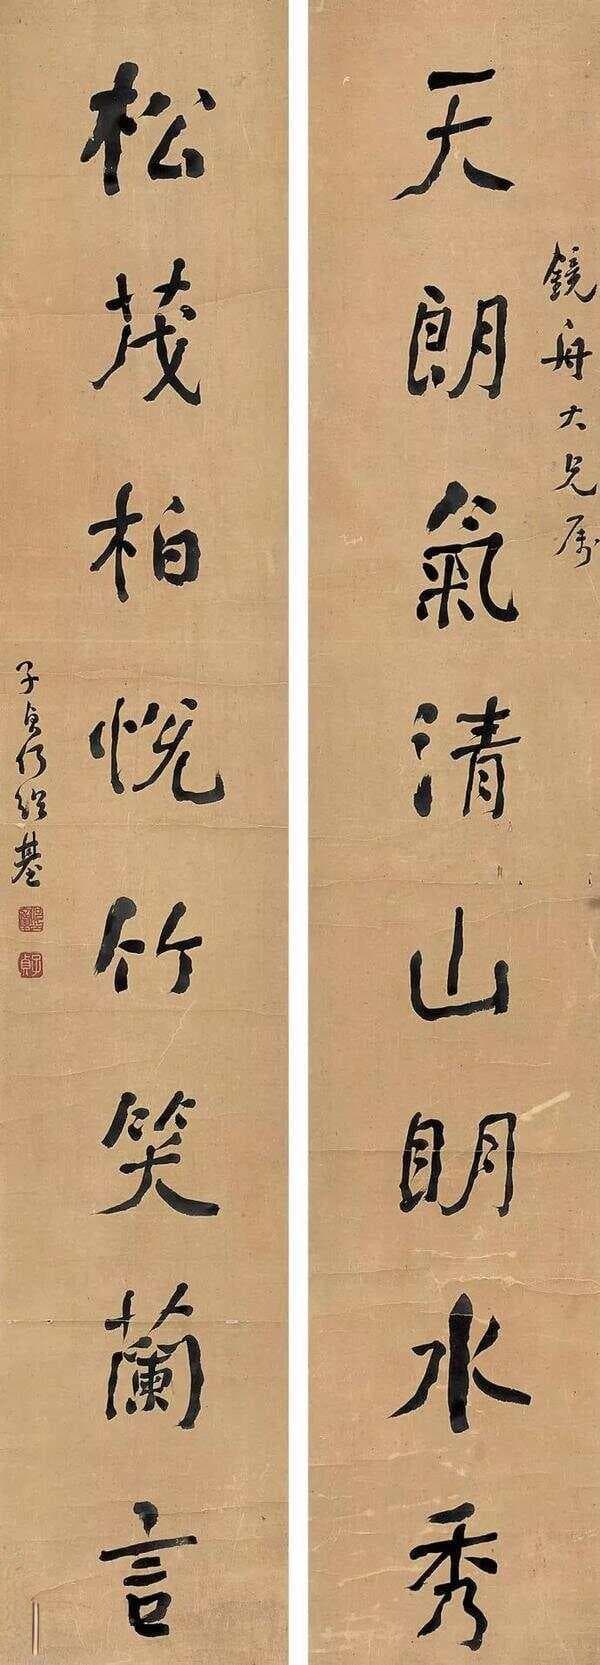 鏡舟大兄屬
天朗氣清山明水秀
松茂柏悅竹笑蘭言
子貞何紹基
子貞